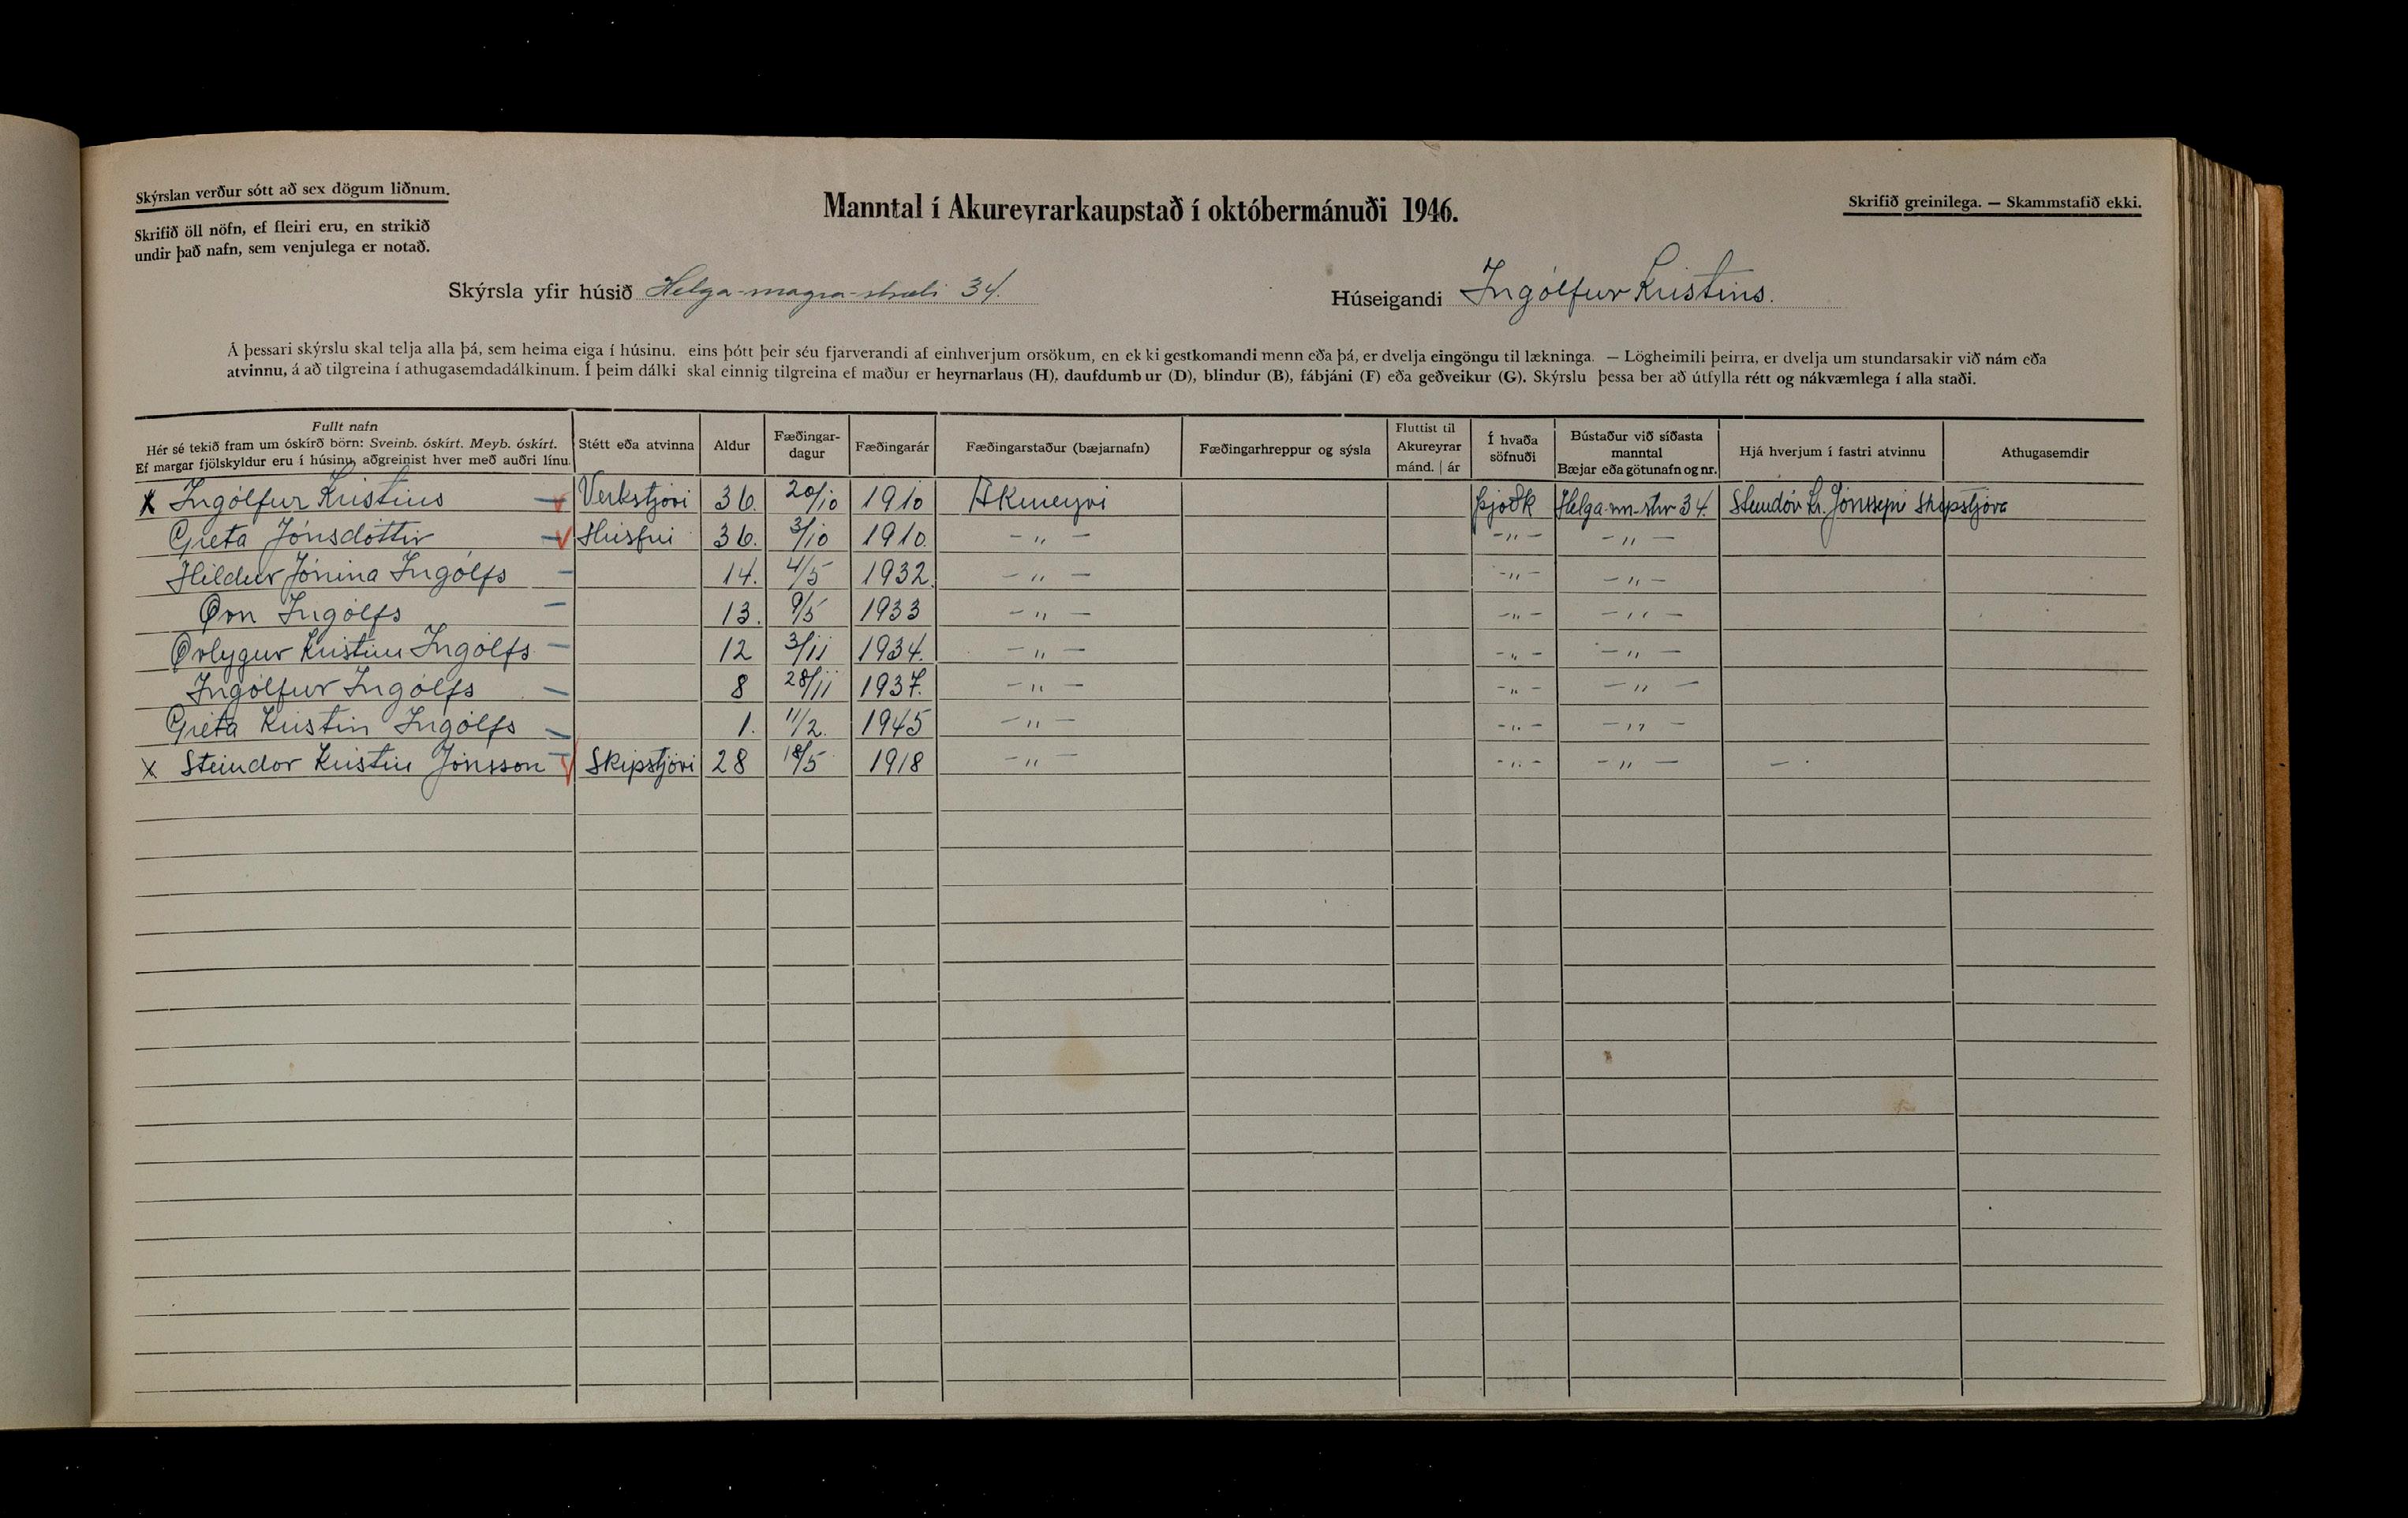 Skýrslan verður sótt að sex dögum liðnum.
Skrifið öll nöfn, ef fleiri eru, en strikið
undir það nafn, sem venjulega er notað.
Manntal í Akureyrarkaupstað í októbermánuði 1946.
Skrifið greinilega. — Skammstafið ekki.
Skýrsla yfir húsið Helga-magra-stræti 34.
Húseigandi Ingólfur Kristins.
Á þessari skýrslu skal telja alla þá, sem heima eiga í húsinu, eins þótt þeir séu fjarverandi af einhverjum orsökum, en ekki gestkomandi menn eða þá, er dvelja eingöngu til lækninga. — Lögheimili þeirra, er dvelja um stundarsakir við nám eða
atvinnu, á að tilgreina í athugasemdadálkinum. Í þeim dálki skal einnig tilgreina ef maður er heyrnarlaus (H), daufdumbur (D), blindur (B), fábjáni (F) eða geðveikur (G). Skýrslu þessa ber að útfylla rétt og nákvæmlega í alla staði.
Fullt nafn
Hér sé tekið fram um óskírð börn: Sveinb. óskírt. Meyb. óskírt.
Ef margar fjölskyldur eru í húsinu, aðgreinist hver með auðri línu.
Stétt eða atvinna
Aldur
Fæðingar-
dagur
Fæðingarár
Fæðingarstaður (bæjarnafn)
Fæðingarhreppur og sýsla
Fluttist til
Akureyrar
mánd. | ár
Í hvaða
söfnuði
Bústaður við síðasta
manntal
Bæjar eða götunafn og nr.
Hjá hverjum í fastri atvinnu
Athugasemdir
x Ingólfur Kristins — Verkstjóri 36. 20/10 1910 Akureyri Þjóðk Helga-m-str 34. Steindór Kr. Jónssyni Skipstjóra
Gréta Jónsdóttir — Húsfrú 36. 3/10 1910. — „ — — „ — — „ —
Hildur Jónína Ingólfs — 14. 4/5 1932. — „ — — „ — — „ —
Örn Ingólfs — 13. 9/5 1933 — „ — — „ — — „ —
Örlygur Kristinn Ingólfs — 12 3/11 1934. — „ — — „ — — „ —
Ingólfur Ingólfs — 8 28/11 1937. — „ — — „ — — „ —
Gréta Kristín Ingólfs — 1. 11/2. 1945 — „ — — „ — — „ —
x Steindór Kristinn Jónsson — Skipstjóri 28 18/5 1918 — „ — — „ — — „ — —